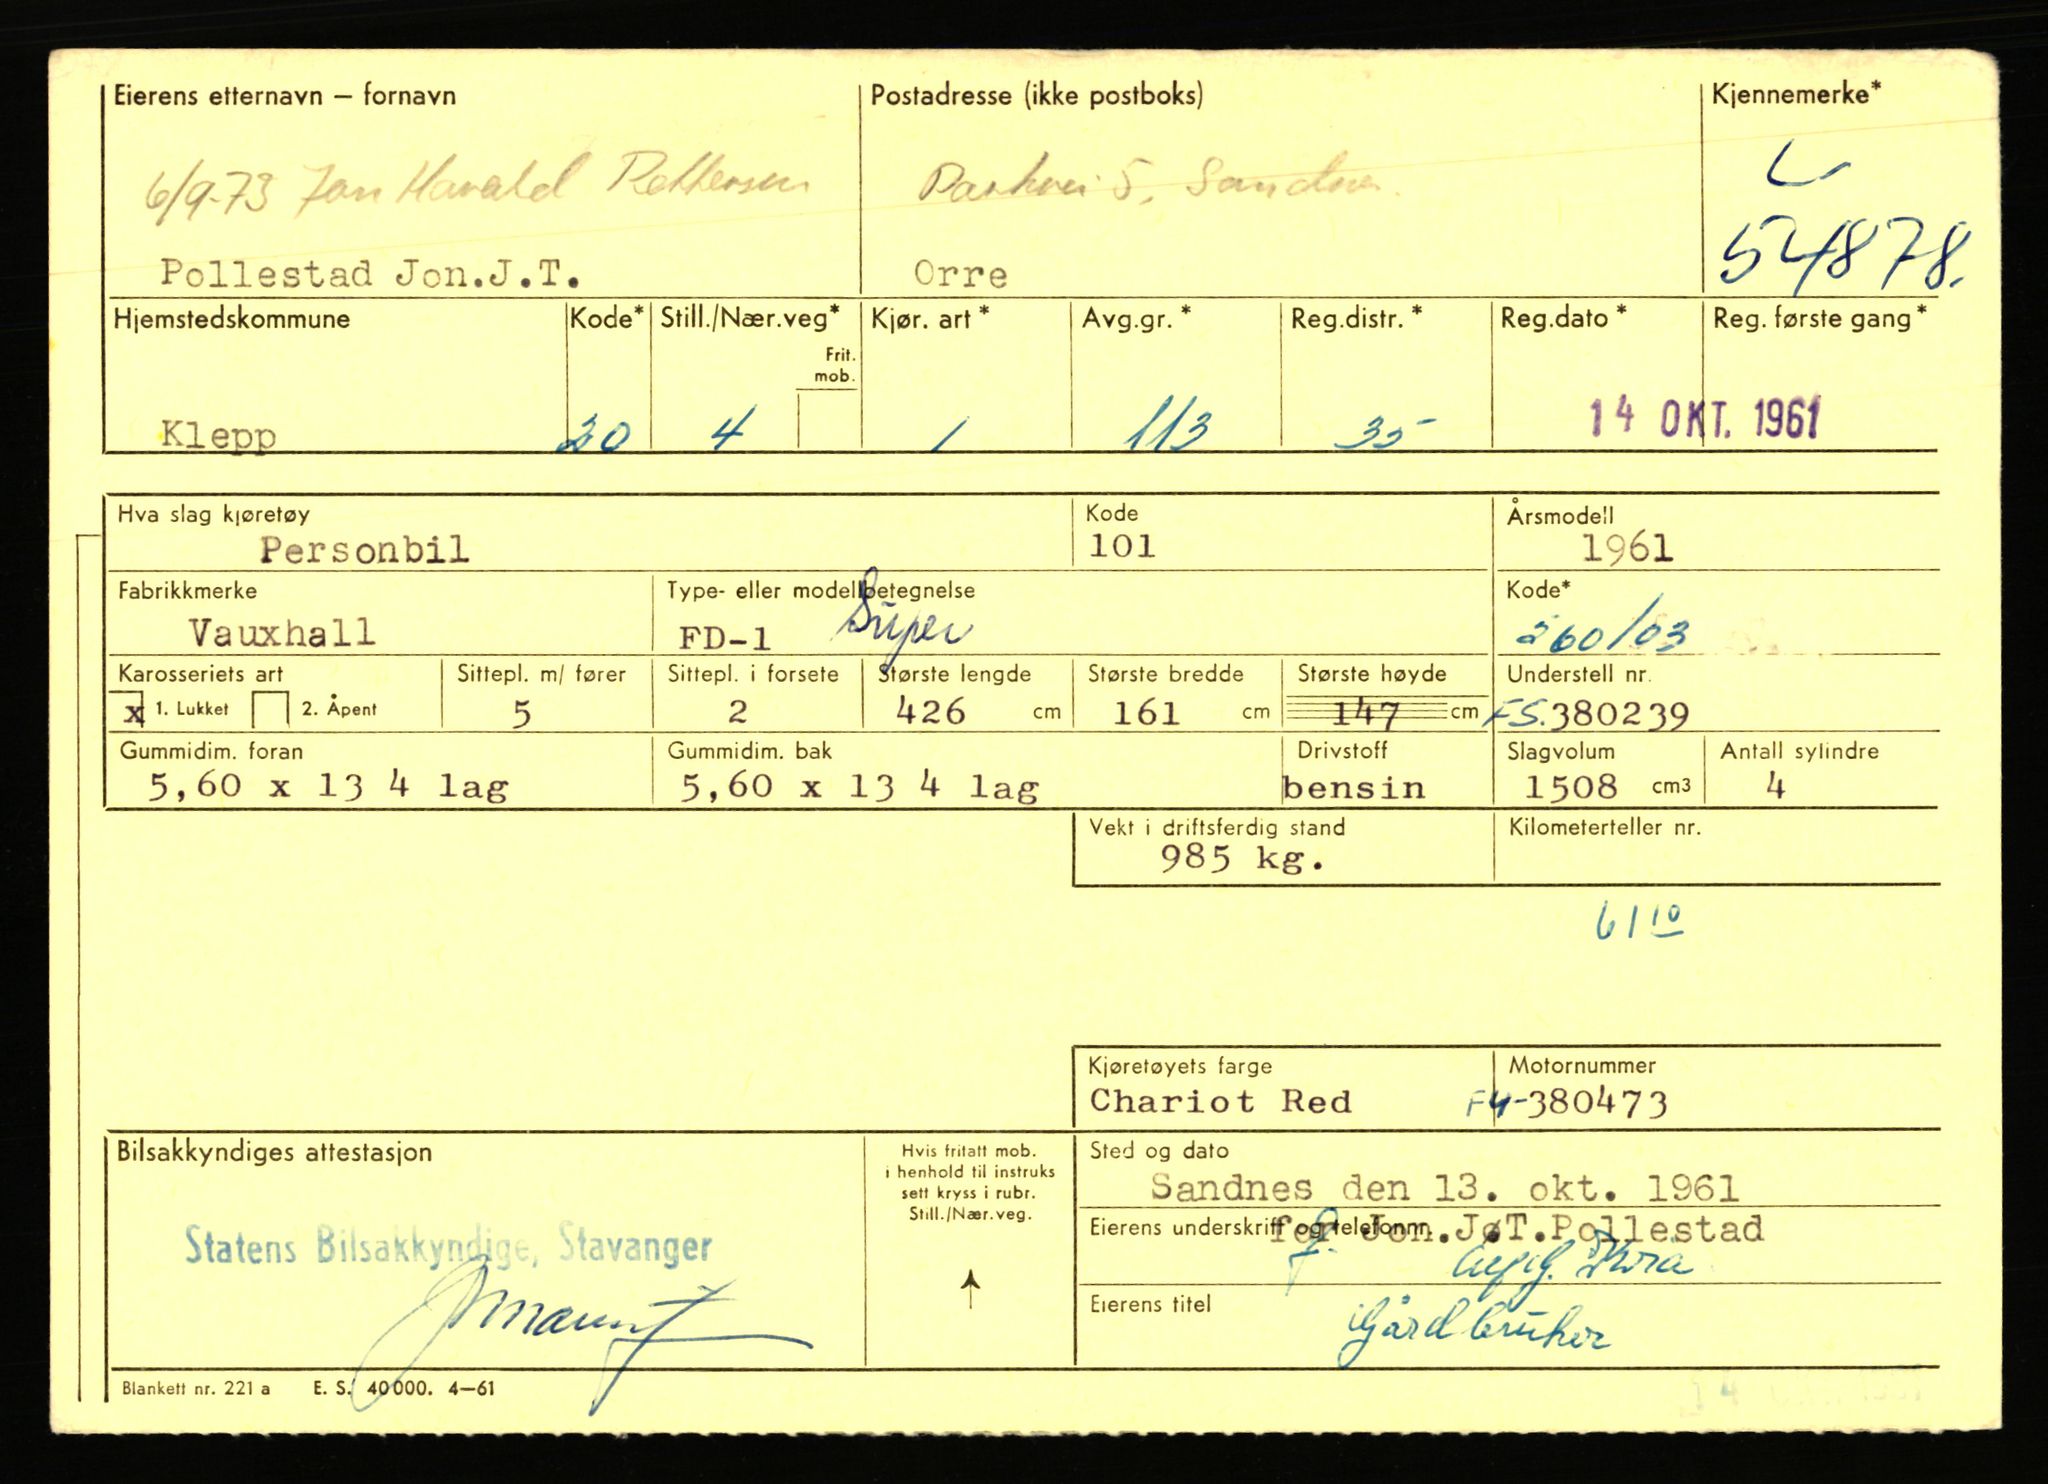 Eierens etternavn – fornavn Postadresse (ikke postboks) Kjennemerke*
6/9-73 Jan Harald Pettersen Parkvei 5, Sandnes. L
54878.
Pollestad Jon.J.T. Orre
Hjemstedskommune Kode* Still./Nær.veg* Kjør. art* Avg.gr.* Reg.distr.* Reg.dato* Reg. første gang*
Frit.
mob.
Klepp 20 4 1 113 35 14 OKT. 1961
Hva slag kjøretøy Kode Årsmodell
Personbil 101 1961
Fabrikkmerke Type- eller modellbetegnelse Kode*
Vauxhall FD-1 Super 260/03
Karosseriets art Sittepl. m/ fører Sittepl. i forsete Største lengde Største bredde Største høyde Understell nr.
x 1. Lukket 2. Åpent 5 2 426 cm 161 cm 147 cm FS.380239
Gummidim. foran Gummidim. bak Drivstoff Slagvolum Antall sylindre
5,60 x 13 4 lag 5,60 x 13 4 lag bensin 1508 cm3 4
Vekt i driftsferdig stand Kilometerteller nr.
985 kg.
61 10
Kjøretøyets farge Motornummer
Chariot Red F4-380473
Bilsakkyndiges attestasjon Hvis fritatt mob. Sted og dato
i henhold til instruks
sett kryss i rubr.
Still./Nær.veg.
Sandnes den 13. okt. 1961
Eierens underskrift og telefonnr. for Jon.JøT.Pollestad
Statens Bilsakkyndige, Stavanger
Eierens titel
Gårdbruker
Blankett nr. 221 a E. S. 40000. 4–61